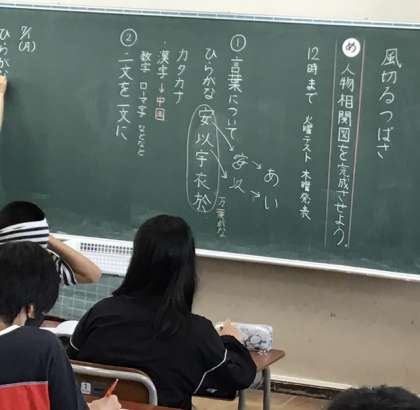 風切るつばさ
め 人物相関図を完成させよう。
12時まで 火曜テスト 木曜発表
① 言葉について
ひらがな
安以宇衣於
安→あ
以→い
万葉がな
カタカナ
・漢字→中国
数字 ローマ字 などなど
② 二文を一文に
7/1
(月)
ひらがな